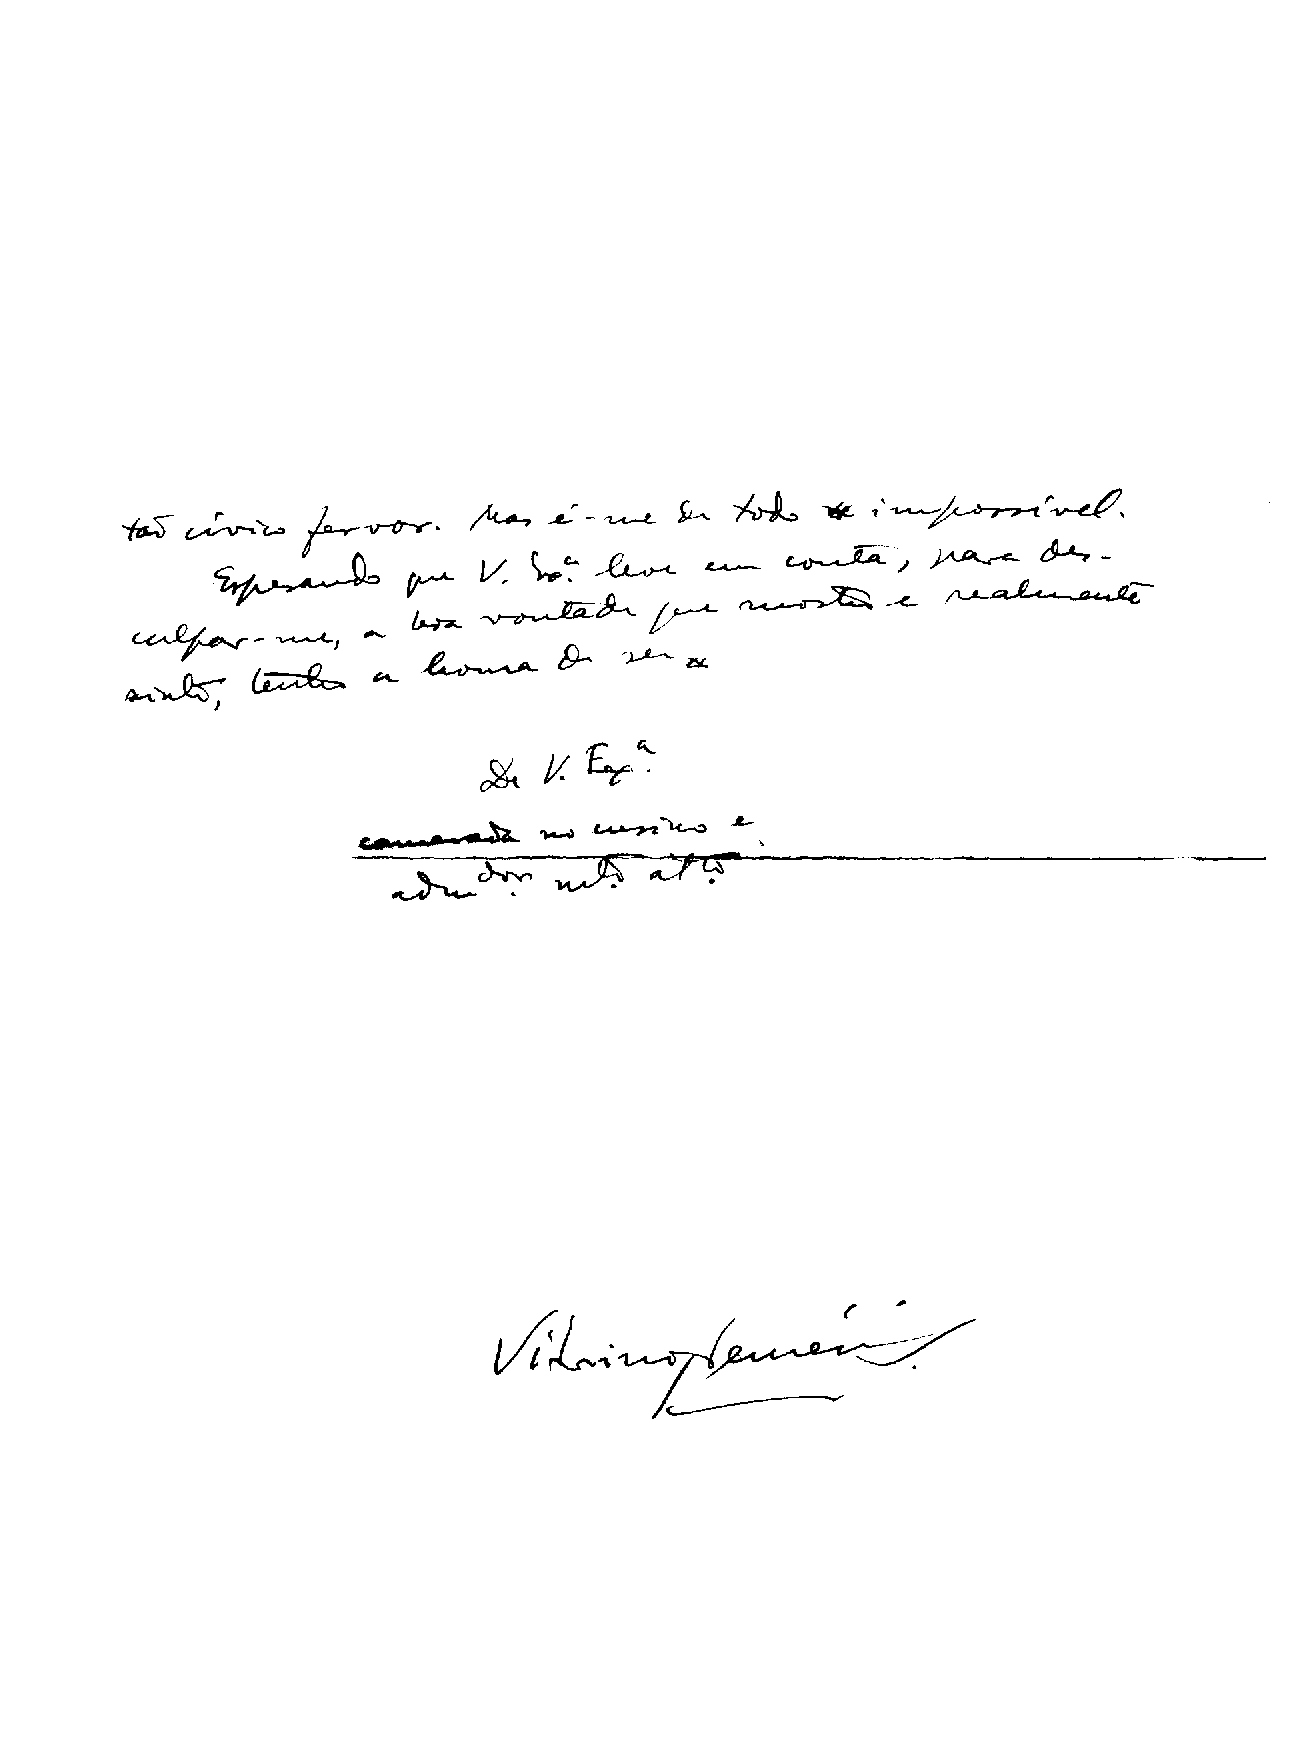 tão cívico fervor. Mas é-me de todo impossível.
Esperando que V. Exª. leve em conta, para des-
culpar-me, a boa vontade que mostro e realmente
sinto, tenho a honra de ser
De V. Exª.
camarada no ensino e
admdor. mto. atto.
Vitorino Nemésio